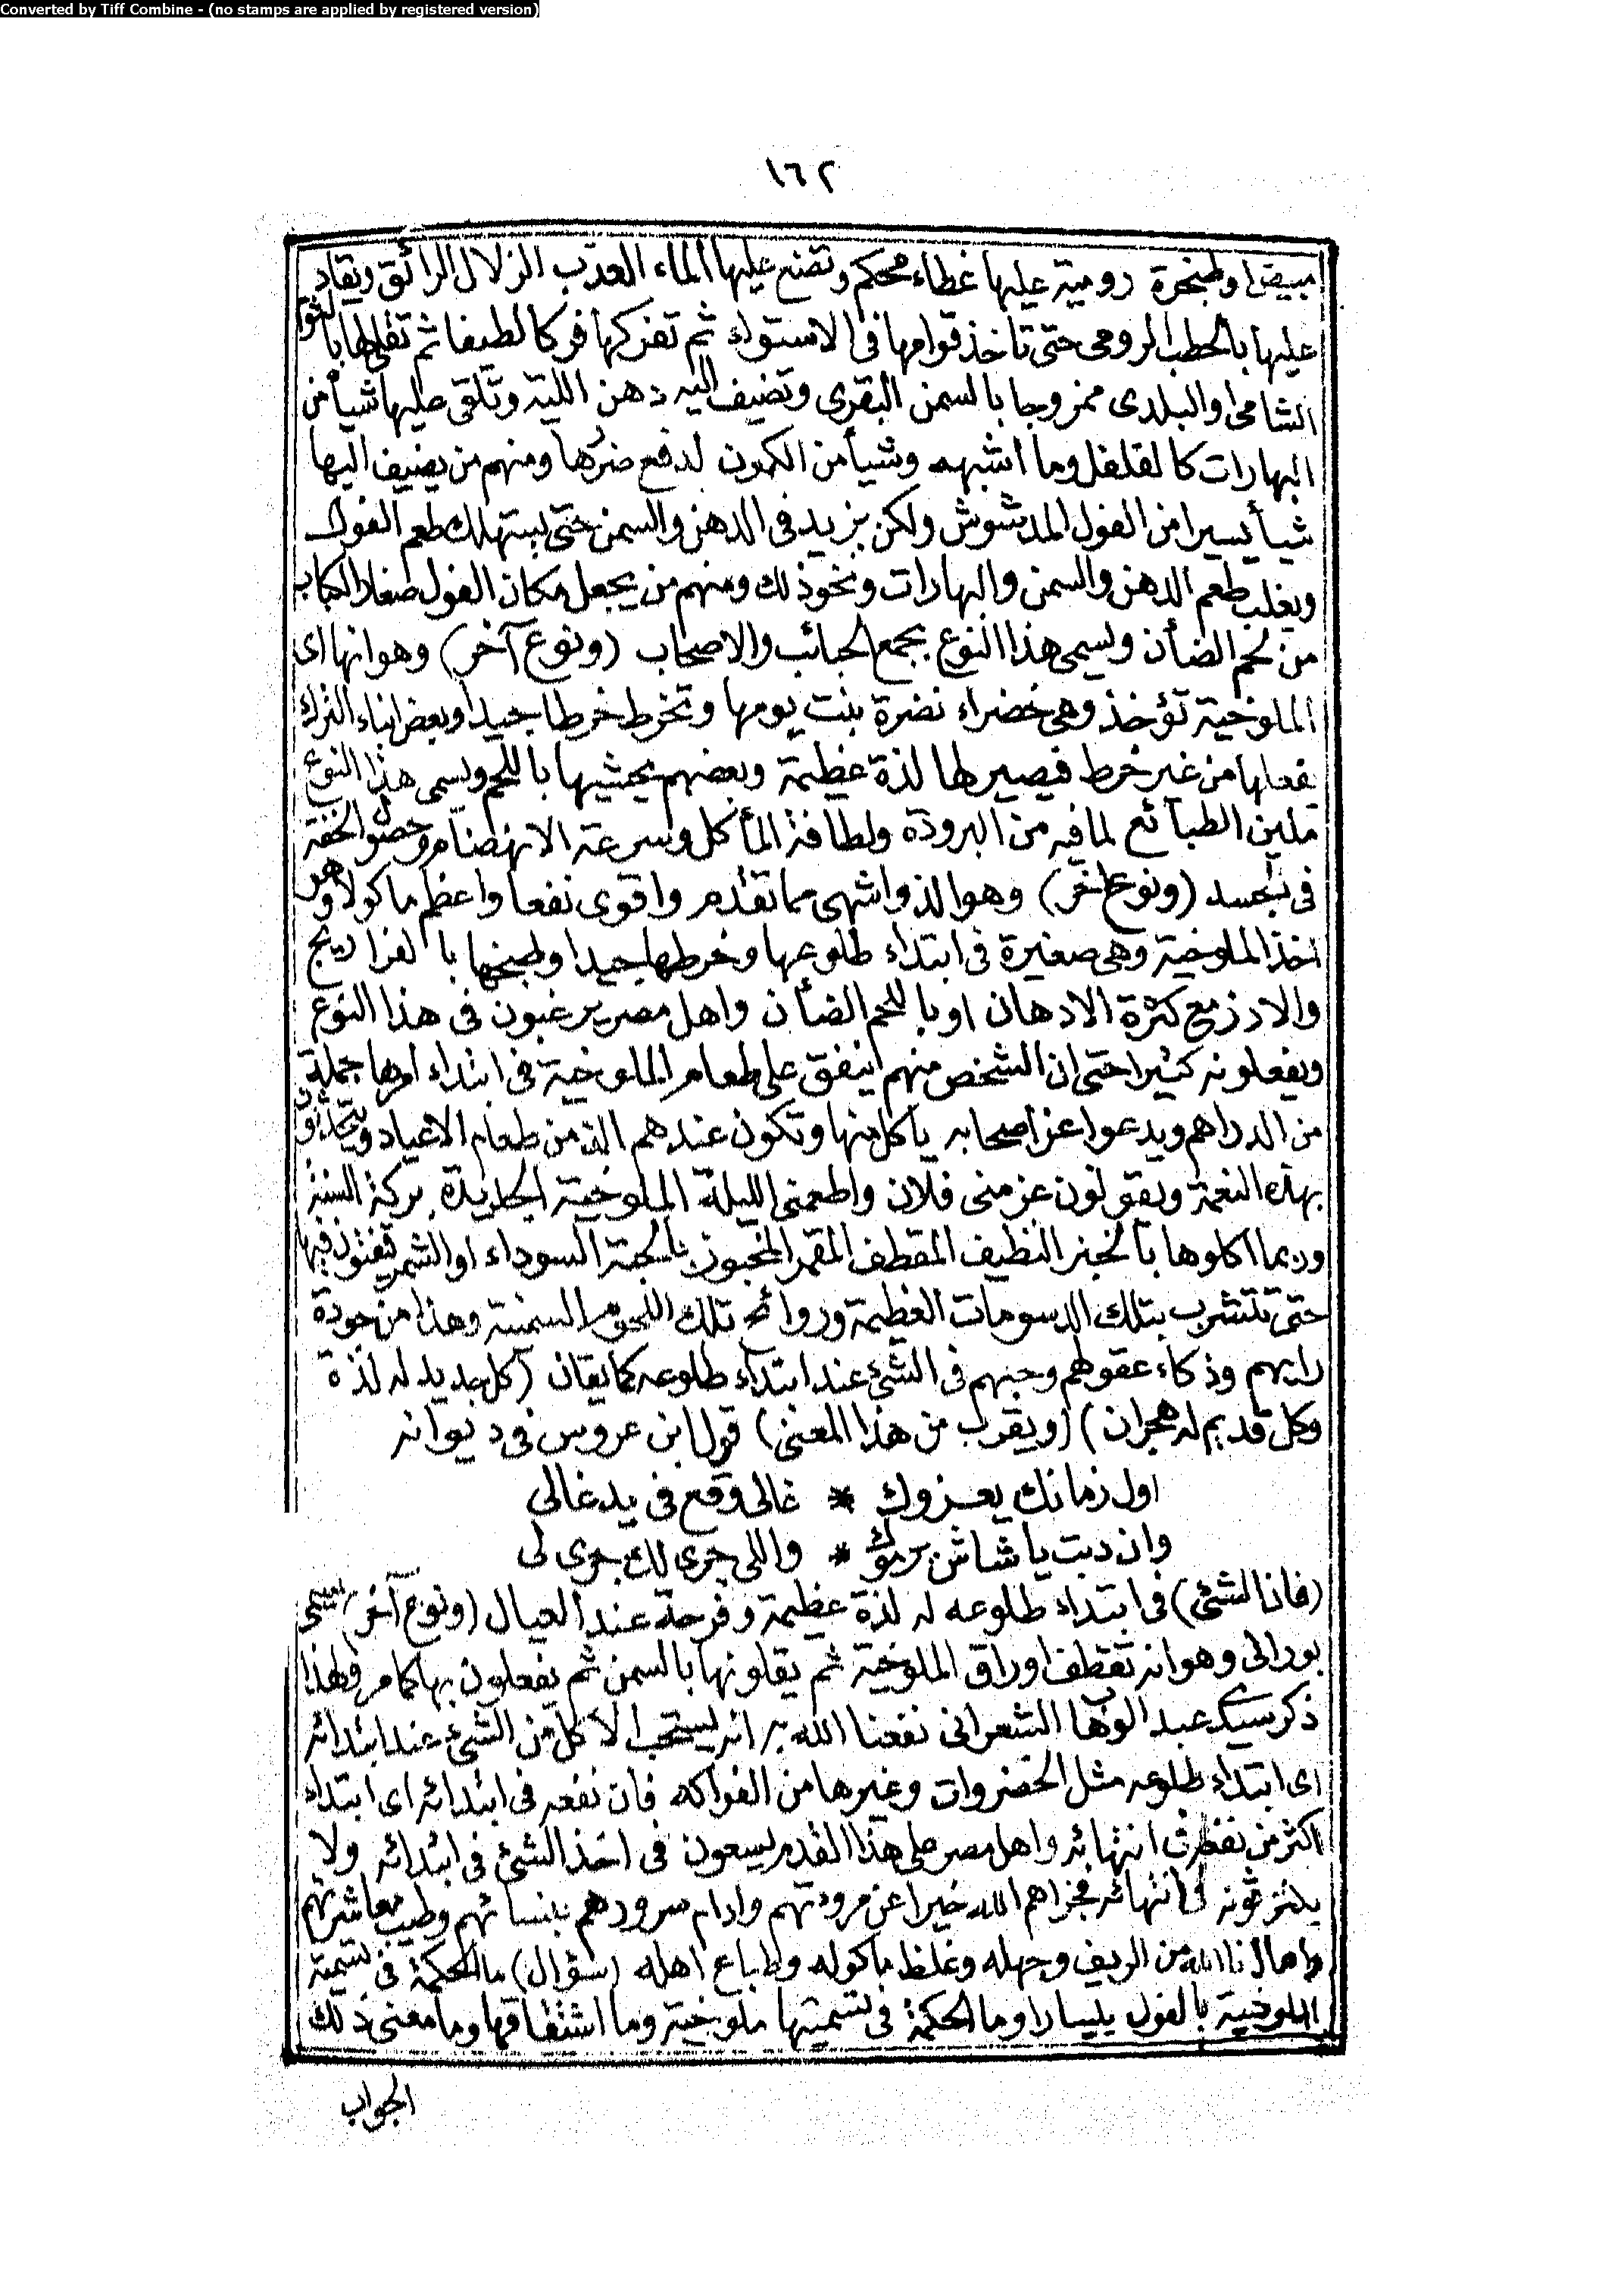 Converted by Tiff Combine - (no stamps are applied by registered version)
١٦٢
مبيض او طبخرة رومية عليها غطاء محكم وتضع عليها الماء العذب الزلال الرائق ويقاد
عليها بالحطب الرومى حتى تاخذ قوامها فى الاستواء ثم تفركها فركا لطيفا ثم تقليها بالثوم
الشامى او البلدى ممزوجا بالسمن البقرى وتضيف اليه دهن اللية وتلقى عليها شيأ من
البهارات كالفلفل وما اشبهه وشيأ من الكمون لدفع ضررها ومنهم من يضيف اليها
شيأ يسيرا من الفول المدشوش ولكن يزيد فى الدهن والسمن حتى يستهلك طعم الفول
ويغلب طعم الدهن والسمن والبهارات ونحو ذلك ومنهم من يجعل مكان الفول صغار الكباب
من لحم الضأن ويسمى هذا النوع بجمع الحبائب والاصحاب (ونوع آخر) وهو انها اى
الملوخية تؤخذ وهى خضراء نضرة بنت يومها وتخرط خرطا جيدا وبعض ابناء الترك
يفعلها من غير خرط فيصير لها لذة عظيمة وبعضهم يحشيها باللحم ويسمى هذا النوع
ملين الطبائع لما فيه من البرودة ولطافة المأكل وسرعة الانهضام وحصول الخفة
فى الجسد (ونوع آخر) وهو الذ واشهى مما تقدم واقوى نفعا واعظم ماكولا وهو
اخذ الملوخية وهى صغيرة فى ابتداء طلوعها وخرطها جيدا وطبخها بالفراريج
والارز مع كثرة الادهان او باللحم الضأن واهل مصر يرغبون فى هذا النوع
ويفعلونه كثيرا حتى ان الشخص منهم ينفق على طعام الملوخية فى ابتداء امرها جملة
من الدراهم ويدعوا عز اصحابه ياكل منها وتكون عندهم الذ من طعام الاعياد ويتحدثون
بهذه النعمة ويقولون عزمنى فلان واطعمنى الليلة الملوخية الجديدة بركة السنة
وربما اكلوها بالخبز النظيف المقطف المقمر المخبوز بالحبة السوداء او الشمر فيفتون فيها
حتى تتشرب بتلك الدسومات العظيمة وروائح تلك اللحوم السمينة وهذا من جودة
رايهم وذكاء عقولهم وحبهم فى الشئ عند ابتداء طلوعه كما يقال (كل جديد له لذة
وكل قديم له هجران) (ويقرب من هذا المعنى) قول ابن عروس فى ديوانه
اول زمانك يعزوك * غالى وقع فى يد غالى
وان دبت يا شاش يرموك * واللى جرى لك جرى لى
(فاذا الشئ) فى ابتداء طلوعه له لذة عظيمة وفرحة عند العيال (ونوع آخر) يسمى
بورانى وهو انه تقطف اوراق الملوخية ثم يقلونها بالسمن ثم يفعلون بها كما مر ولهذا
ذكر سيدى عبد الوهاب الشعرانى نفعنا الله به انه يستحب الاكل من الشئ عند ابتدائه
اى ابتداء طلوعه مثل الخضروات وغيرها من الفواكه فان نفعه فى ابتدائه اى ابتداء
اكثر من نفعه فى انتهائه واهل مصر على هذا القدم يسعون فى اخذ الشئ فى ابتدائه ولا
يكترثونه فى انتهائه فجزاهم الله خيرا عن مروءتهم وادام سرورهم بنسائهم وطيب معاشرتهم
واحالنا الله من الريف وجهله وغلظ ماكوله وطباع اهله (سؤال) ما الحكمة فى تسمية
الملوخية بالفول بيسارا وما الحكمة فى تسميتها ملوخية وما اشتقاقها وما معنى ذلك
الجواب